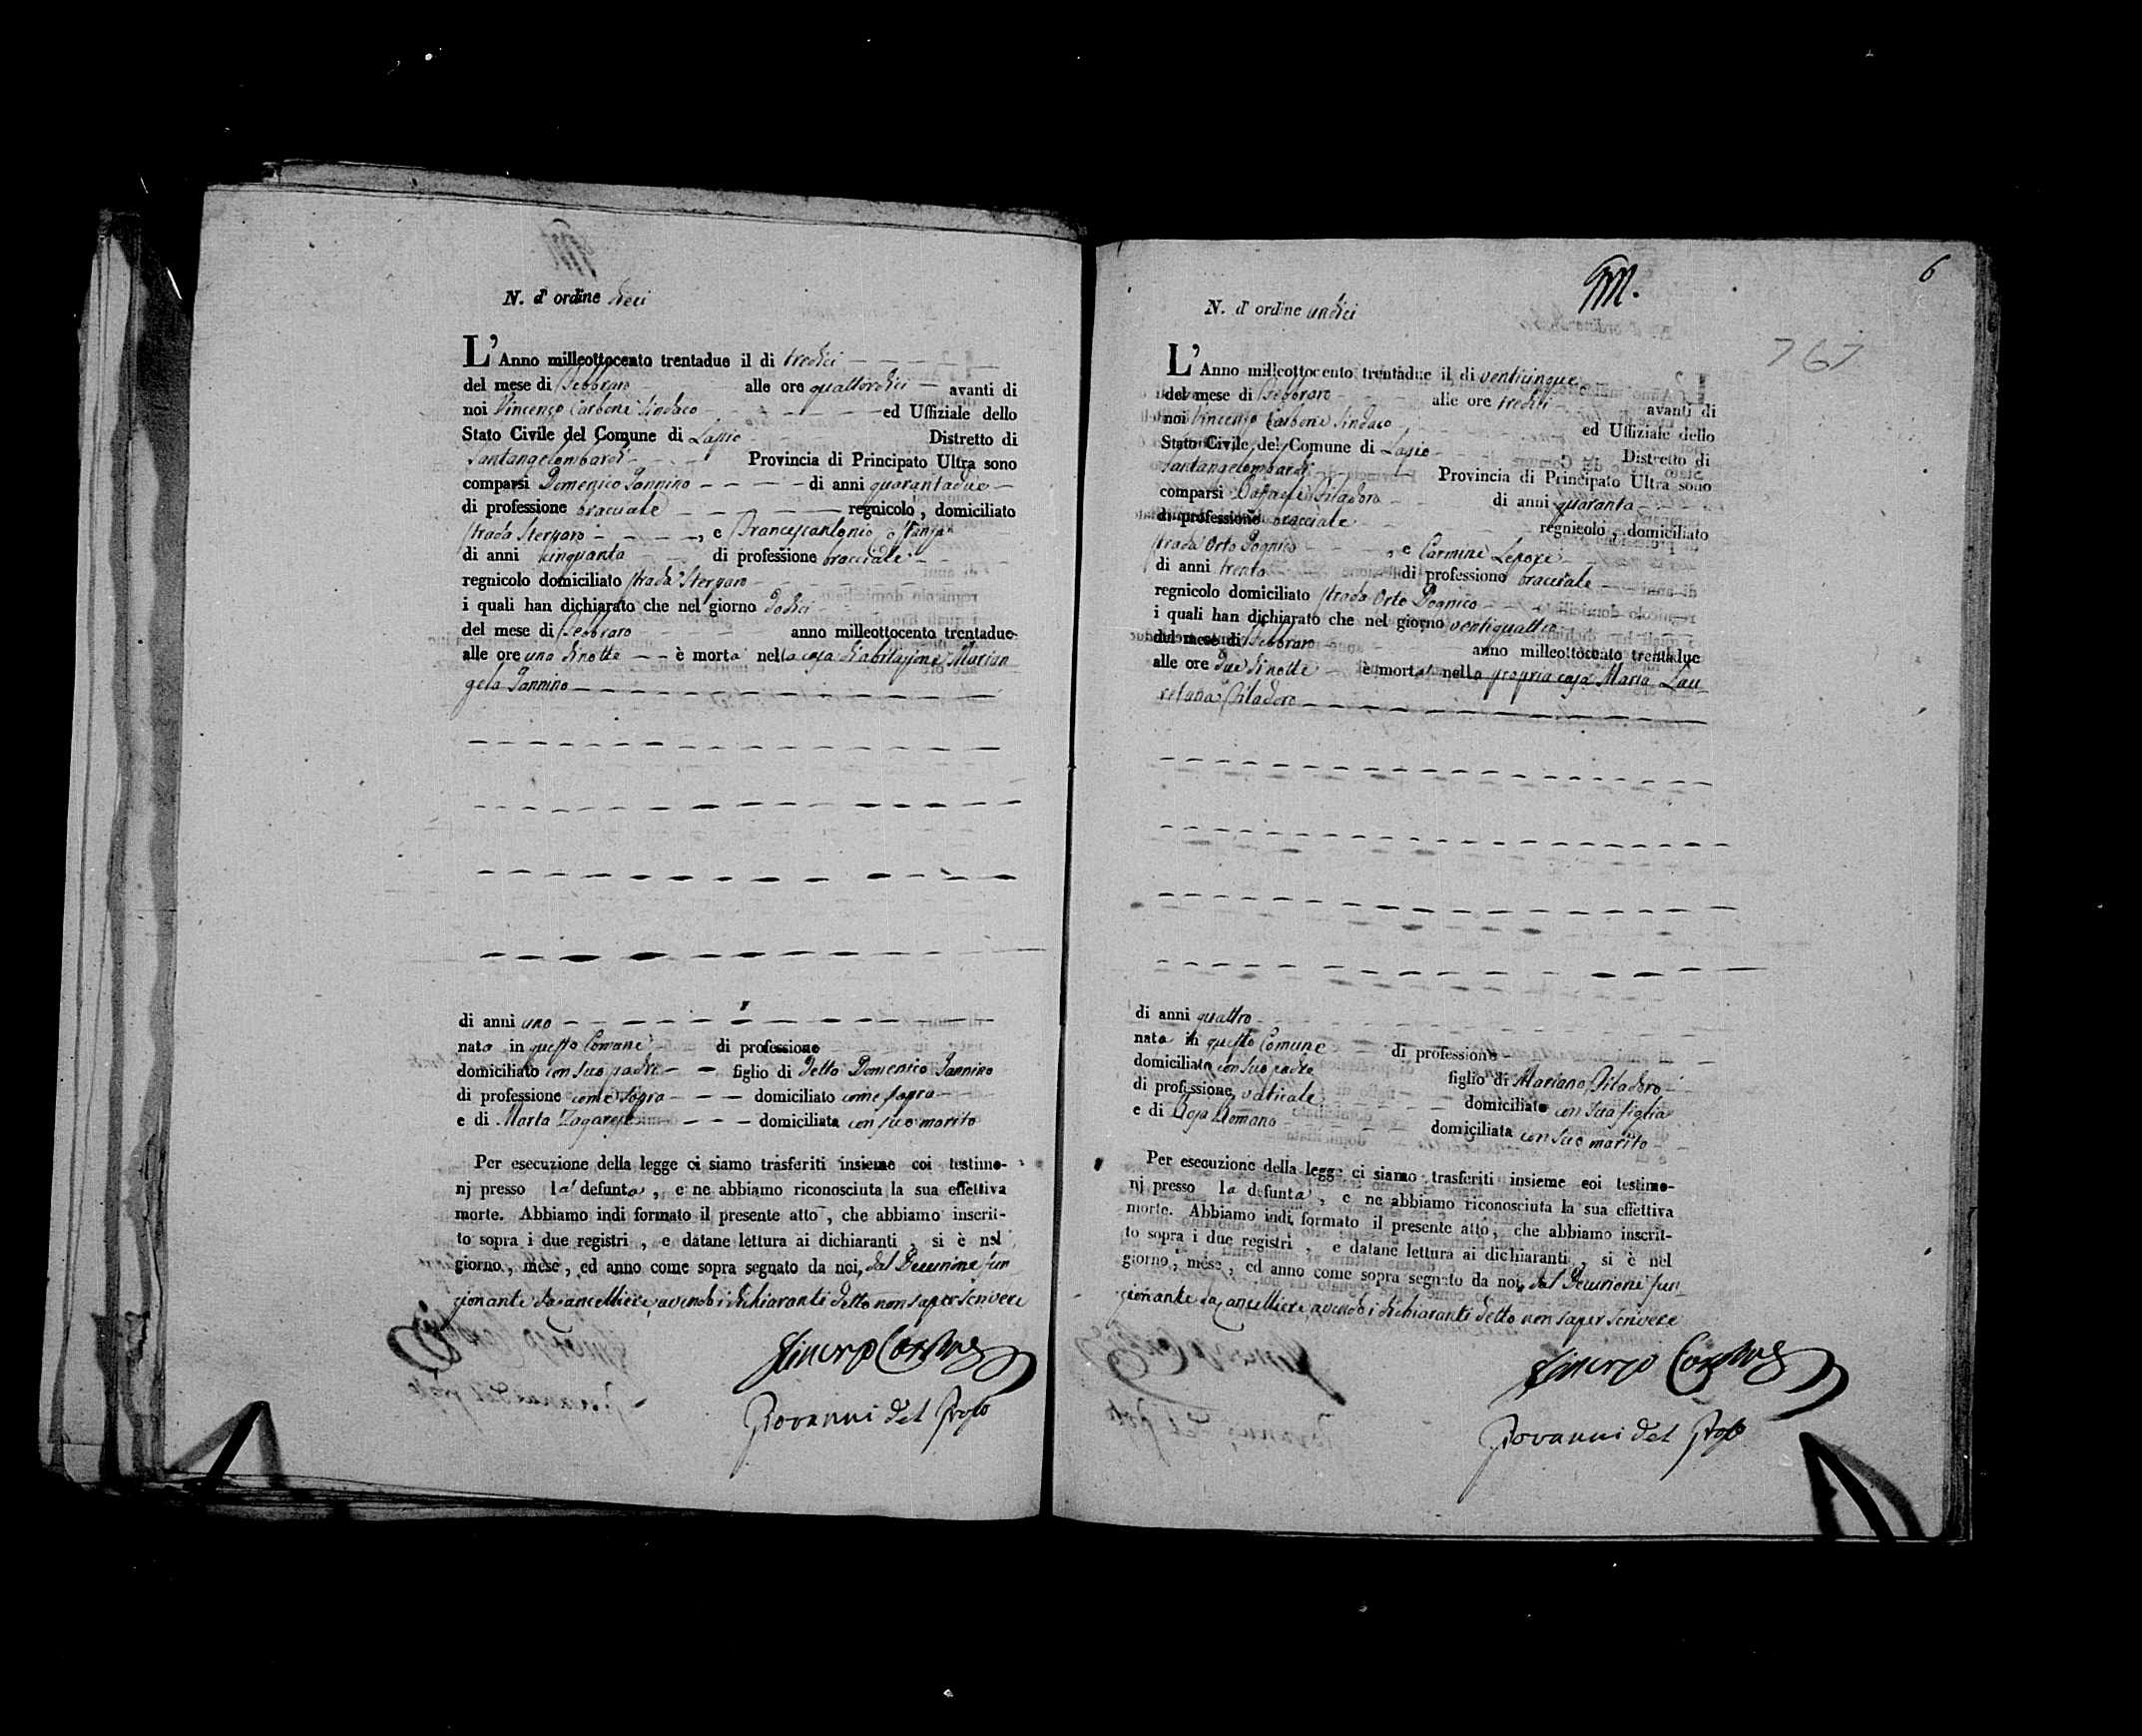 N. d'ordine dieci
L'Anno milleottocento trentadue il di tredici
del mese di Febbraro alle ore quattordici avanti di
noi Vincenzo Carbone Sindaco ed Uffiziale dello
Stato Civile del Comune di Lapio Distretto di
Santangelombardi Provincia di Principato Ultra sono
comparsi Domenico Iannino di anni quarantadue
di professione bracciale regnicolo, domiciliato
strada Stersaro, e Francescantonio
di anni cinquanta di professione bracciale
regnicolo domiciliato strada Stersaro
i quali han dichiarato che nel giorno dodici
del mese di Febbraro anno milleottocento trentadue
alle ore una di notte è morta nella casa d'abitazione Marian
gela Iannino
di anni uno
nata in questo Comune di professione
domiciliato con suo padre figlio di detto Domenico Iannino
di professione come sopra domiciliato come sopra
e di Marta Zagarese domiciliata con suo marito
Per esecuzione della legge ci siamo trasferiti insieme coi testimo-
nj presso la defunta, e ne abbiamo riconosciuta la sua effettiva
morte. Abbiamo indi formato il presente atto, che abbiamo inscrit-
to sopra i due registri, e datane lettura ai dichiaranti, si è nel
giorno, mese, ed anno come sopra segnato da noi, dal Decurione fun
zionante da Cancelliere, avendo i dichiaranti detto non saper scrivere
Vincenzo Carbone
Giovanni del Prato
6
767
N. d'ordine undici
L'Anno milleottocento trentadue il di venticinque
del mese di Febbraro alle ore tredici avanti di
noi Vincenzo Carbone Sindaco ed Uffiziale dello
Stato Civile del Comune di Lapio Distretto di
Santangelombardi Provincia di Principato Ultra sono
comparsi Raffaele Piladoro di anni quaranta
di professione bracciale regnicolo, domiciliato
strada Orto Dognico, e Carmine Lepore
di anni trenta di professione bracciale
regnicolo domiciliato strada Orto Dognico
i quali han dichiarato che nel giorno ventiquattro
del mese di Febbraro anno milleottocento trentadue
alle ore due di notte è morta nella propria casa Maria Lau
retana Piladoro
di anni quattro
nata in questo Comune di professione
domiciliato con suo padre figlio di Mariano Piladoro
di professione vaticale domiciliato con sua figlia
e di Rosa Romano domiciliata con suo marito
Per esecuzione della legge ci siamo trasferiti insieme coi testimo-
nj presso la defunta, e ne abbiamo riconosciuta la sua effettiva
morte. Abbiamo indi formato il presente atto, che abbiamo inscrit-
to sopra i due registri, e datane lettura ai dichiaranti, si è nel
giorno, mese, ed anno come sopra segnato da noi, dal Decurione fun
zionante da Cancelliere, avendo i dichiaranti detto non saper scrivere
Vincenzo Carbone
Giovanni del Prato